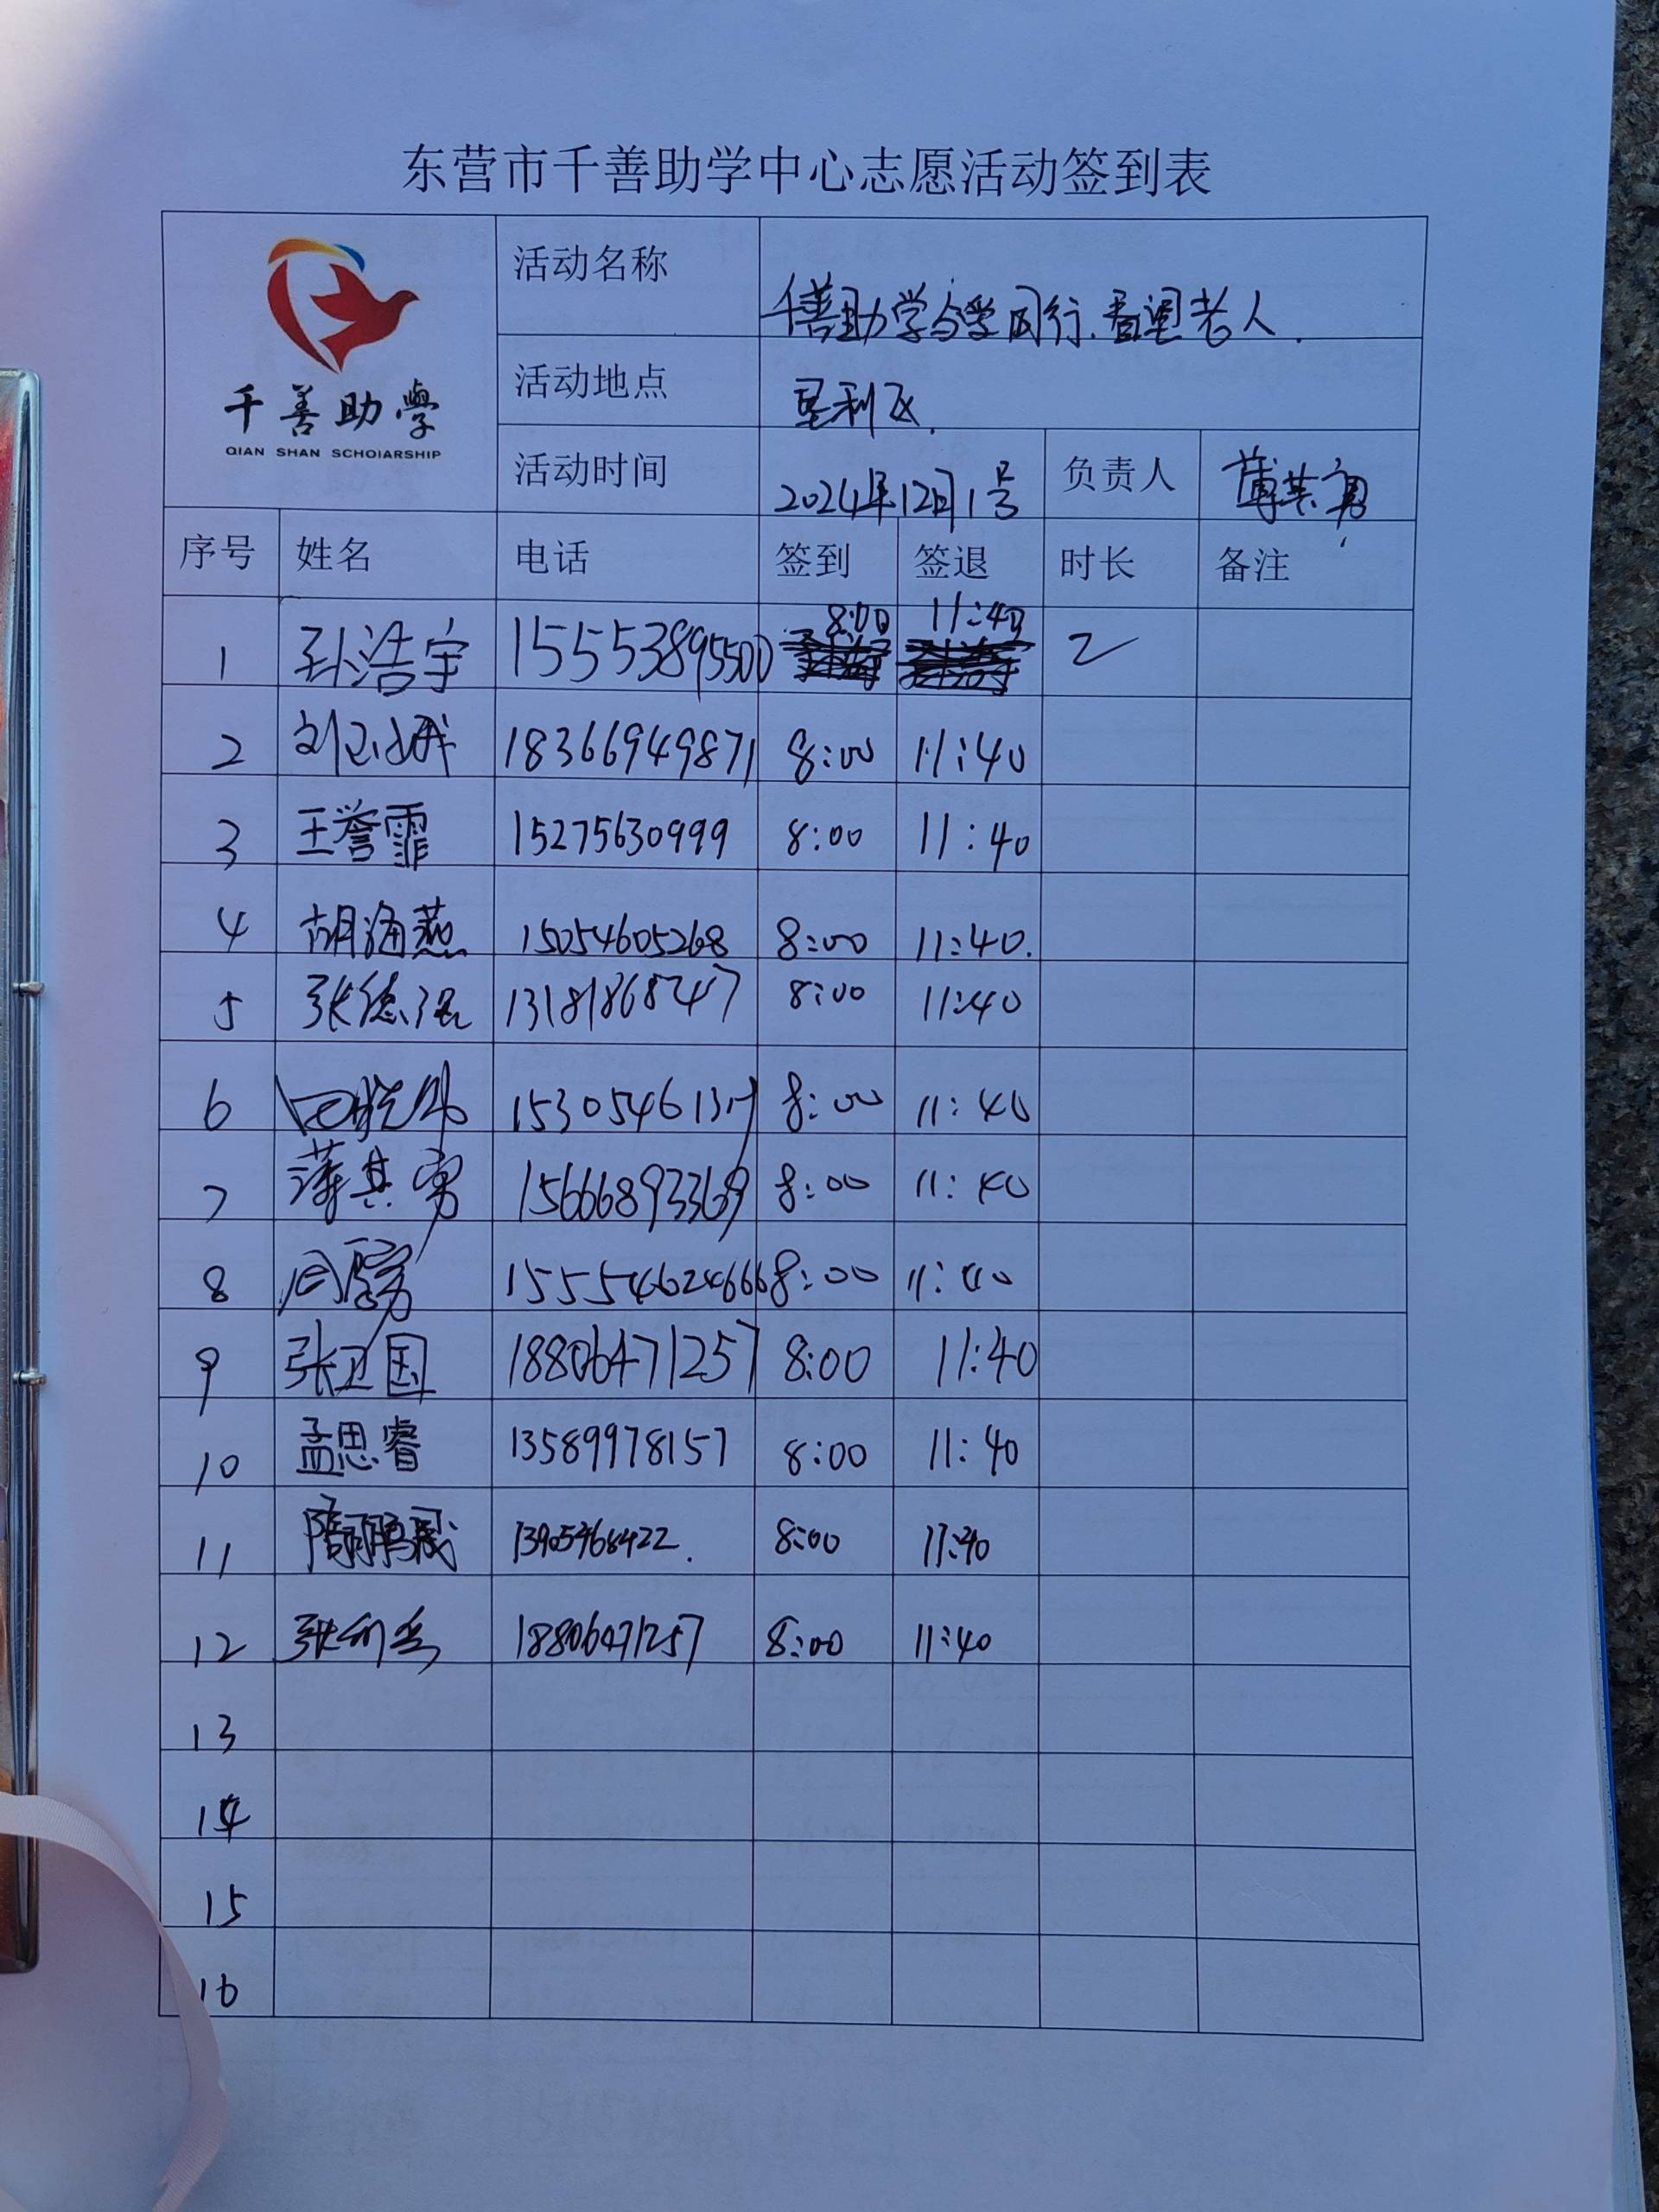 东营市千善助学中心志愿活动签到表
千善助學
QIAN SHAN SCHOIARSHIP
活动名称 千善助学与学同行.看望老人.
活动地点 垦利区.
活动时间 2024年12月1号 负责人 薄其勇
序号 姓名 电话 签到 签退 时长 备注
1 孙浩宇 15553895500 8:00 11:40 2
2 刘 18366949871 8:00 11:40
3 王誉霏 15275630999 8:00 11:40
4 胡海燕 15054605268 8:00 11:40.
5 张德 13181868747 8:00 11:40
6 8:00 11:40
7 薄其勇 15666893369 8:00 11:40
8 15554624666 8:00 11:40
9 张卫国 18806471257 8:00 11:40
10 孟思睿 13589978157 8:00 11:40
11 隋鹏晟 13905468422. 8:00 11:40
12 张 18806471257 8:00 11:40
13
14
15
16